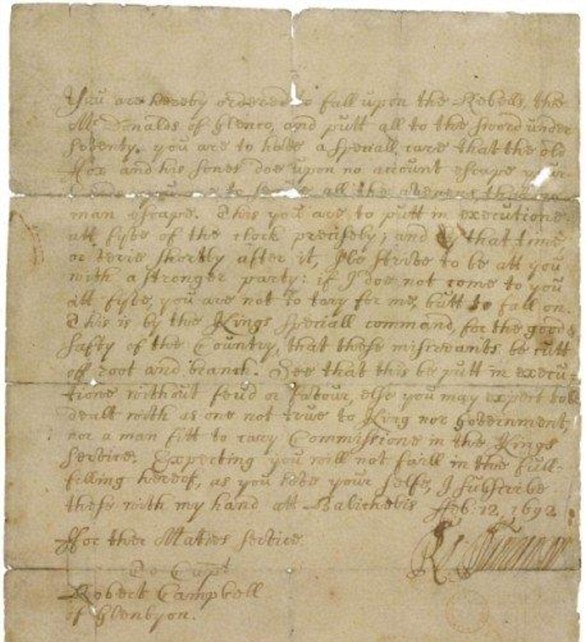 You are hereby ordered to fall upon the Rebells, the
McDonalds of Glenco, and putt all to the sword under
seventy. you are to have a speciall care that the old
Fox and his sones doe upon no account escape your
hands, you are to secure all the avenues that no
man escape. This you are to putt in executione
att fyve of the clock precisely; and by that time
or verie shortly after it, I'le strive to be att you
with a stronger party: if I doe not come to you
att fyve, you are not to tary for me, butt to fall on.
This is by the Kings speciall command, for the good &
safty of the Country, that these miscreants be cutt
off root and branch. See that this be putt in execu-
tione without feud or favour, else you may expect to be
dealt with as one not true to King nor Government,
nor a man fitt to cary Commissione in the Kings
service. Expecting you will not faill in the full-
filling hereof, as you love your selfe, I subscribe
these with my hand att Balicholis Feb: 12, 1692
For ther Maties service
To Capt
Robert Campbell
of Glenlyon.